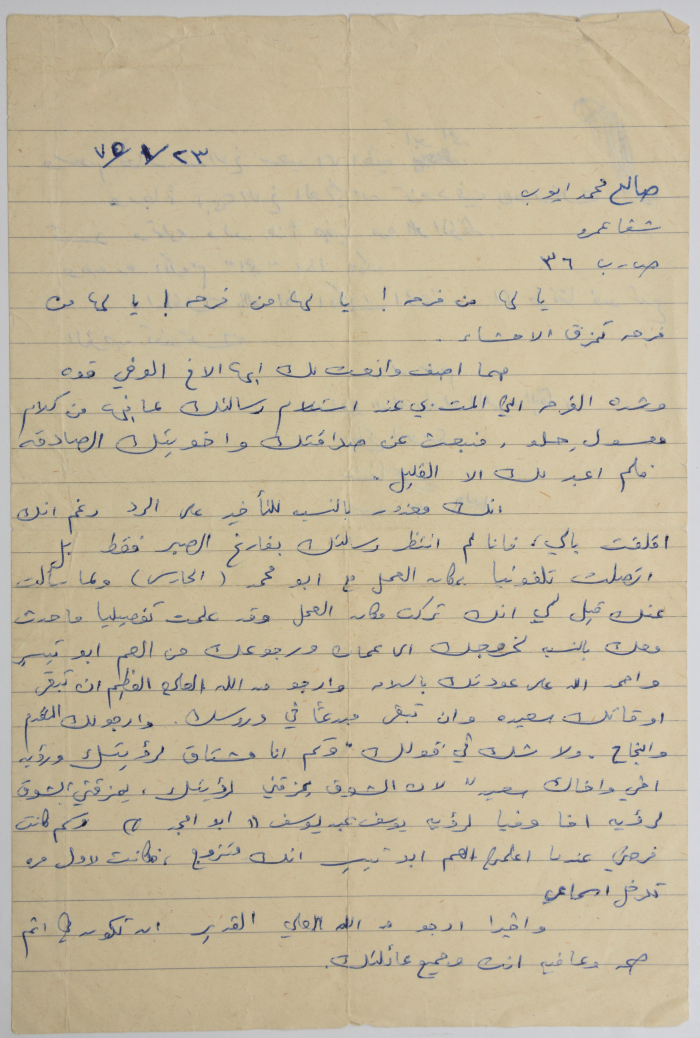 ٢٣/١/٧٥
صالح محمد ايوب
شفا عمرو
ص.ب ٣٦
يا لها من فرحه! يا لها من فرحه! يا لها من
فرحه تمزق الاحشاء.
مهما اصف وانعت لك ايها الاخ الوفي قوه
وشده الفرحه التي المت بي عند استلام رسالتك بما فيها من كلام
معسول حلو، ينبعث عن صداقتك واخويتك الصادقه
فلم اعبر لك الا القليل.
انك معذور بالنسبه للتأخير على الرد رغم انك
اقلقت بالي، فانا لم انتظر رسالتك بفارغ الصبر فقط بل
اتصلت تلفونيا بمكان العمل مع ابو محمد (الحارس) ولما سألت
عنك قيل لي انك تركت مكان العمل وقد علمت تفصيليا ما حدث
معك بالنسبه لخروجك الى عمان ورجوعك من العم ابو تيسير
واحمد الله على عودتك بالسلامه وارجو من الله العلي العظيم ان تبقى
اوقاتك سعيده وان تبقى مبدعًا في دروسك. وارجو لك التقدم
والنجاح. ولا شك في قولك "وكم انا مشتاق لرؤيتك ورؤيه
اخي واخاك سعيد" لان الشوق يمزقني لرؤيتك، يمزقني الشوق
لرؤيه اخا وفيا لرؤيه يوسف عبد يوسف "ابو امجد" وكم كانت
فرحتي عندما اعلمني العم ابو تيسير انك متزوج، فكانت لاول مره
تدخل اسماعي
واخيرا ارجو من الله العلي القدير ان تكون في اتم
صحه وعافيه انت وجميع عائلتك.